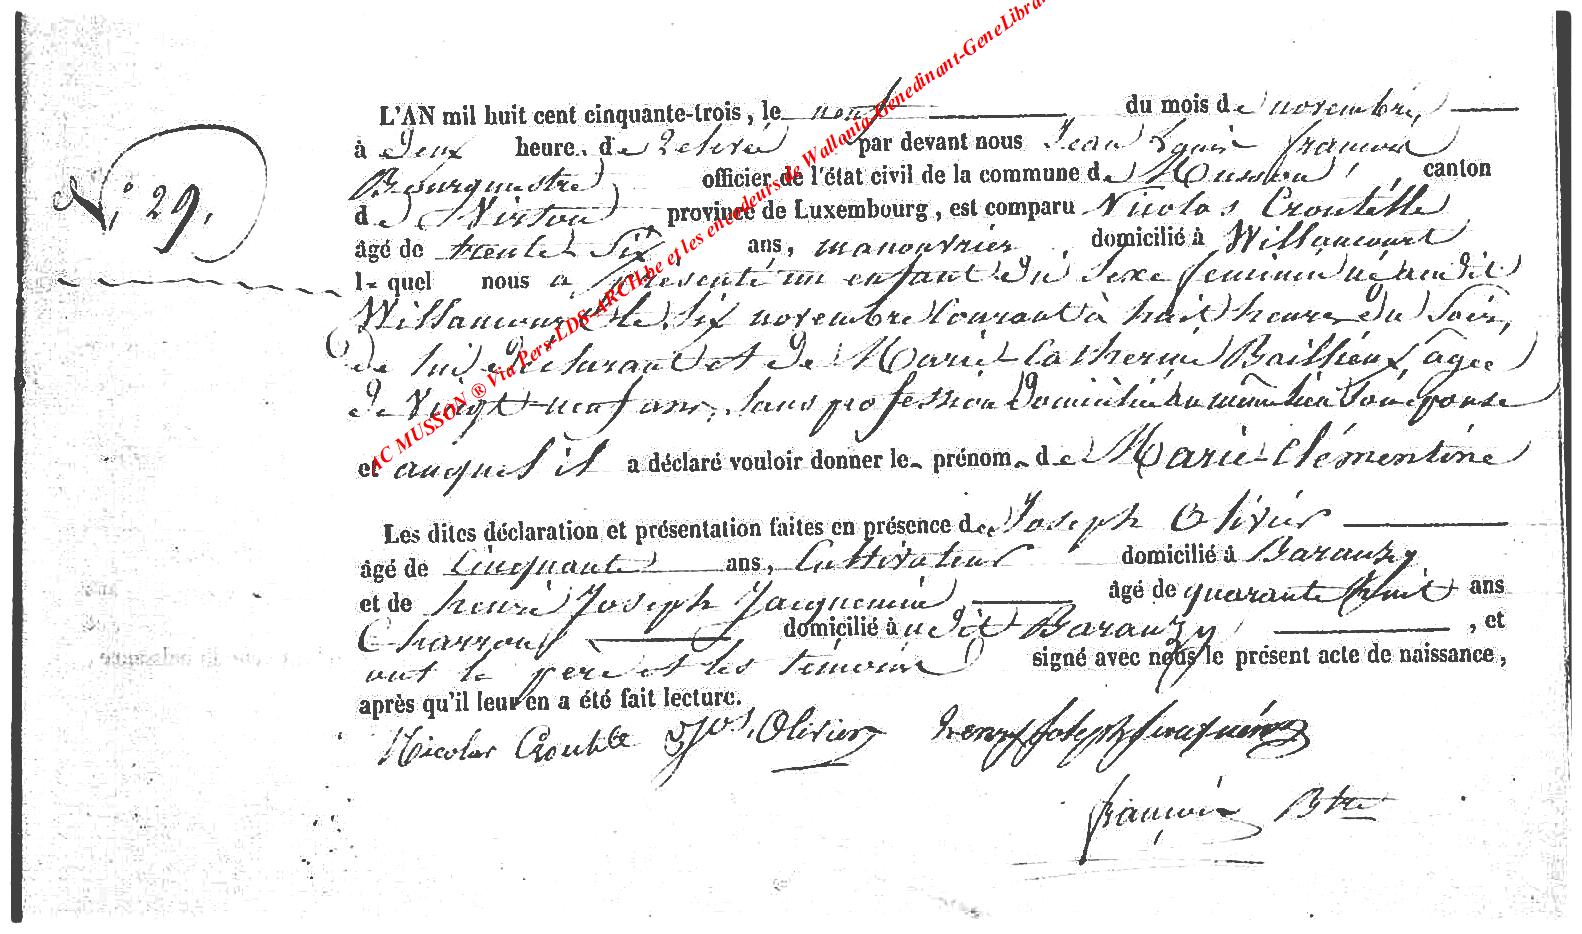 AC MUSSON ® Via Pers-LDS-ARCH.be et les encodeurs de Wallonia-Genedinant-GeneLibra
N.° 29.
L'AN mil huit cent cinquante-trois, le neuf du mois de novembre,
à Deux heure. de relevée par devant nous Jean Louis françois
Bourgmestre officier de l'état civil de la commune de Musson, canton
de Virton province de Luxembourg, est comparu Nicolas Croutelle
âgé de trente Six ans, manouvrier domicilié à Willancourt
le quel nous a présenté un enfant du Sexe feminin né au dit
Willancourt le Six novembre Courant à huit heures du Soir,
de lui déclarant et de Marie-Catherine Baillieux, agée
de Vingt-neuf ans, Sans profession Domiciliée au même lieu Son épouse
et auquel il a déclaré vouloir donner le prénom de Marie-Clémentine
Les dites déclaration et présentation faites en présence de Joseph Olivier
âgé de Cinquante ans, Cultivateur domicilié à Baranzy
et de henri Joseph Jacquemin âgé de quarante huit ans
Charron domicilié au dit Baranzy, et
ont le père et les témoins signé avec nous le présent acte de naissance,
après qu'il leur en a été fait lecture.
Nicolas Croutelle Jos. Olivier henry Joseph Jacquemin
françois Btre